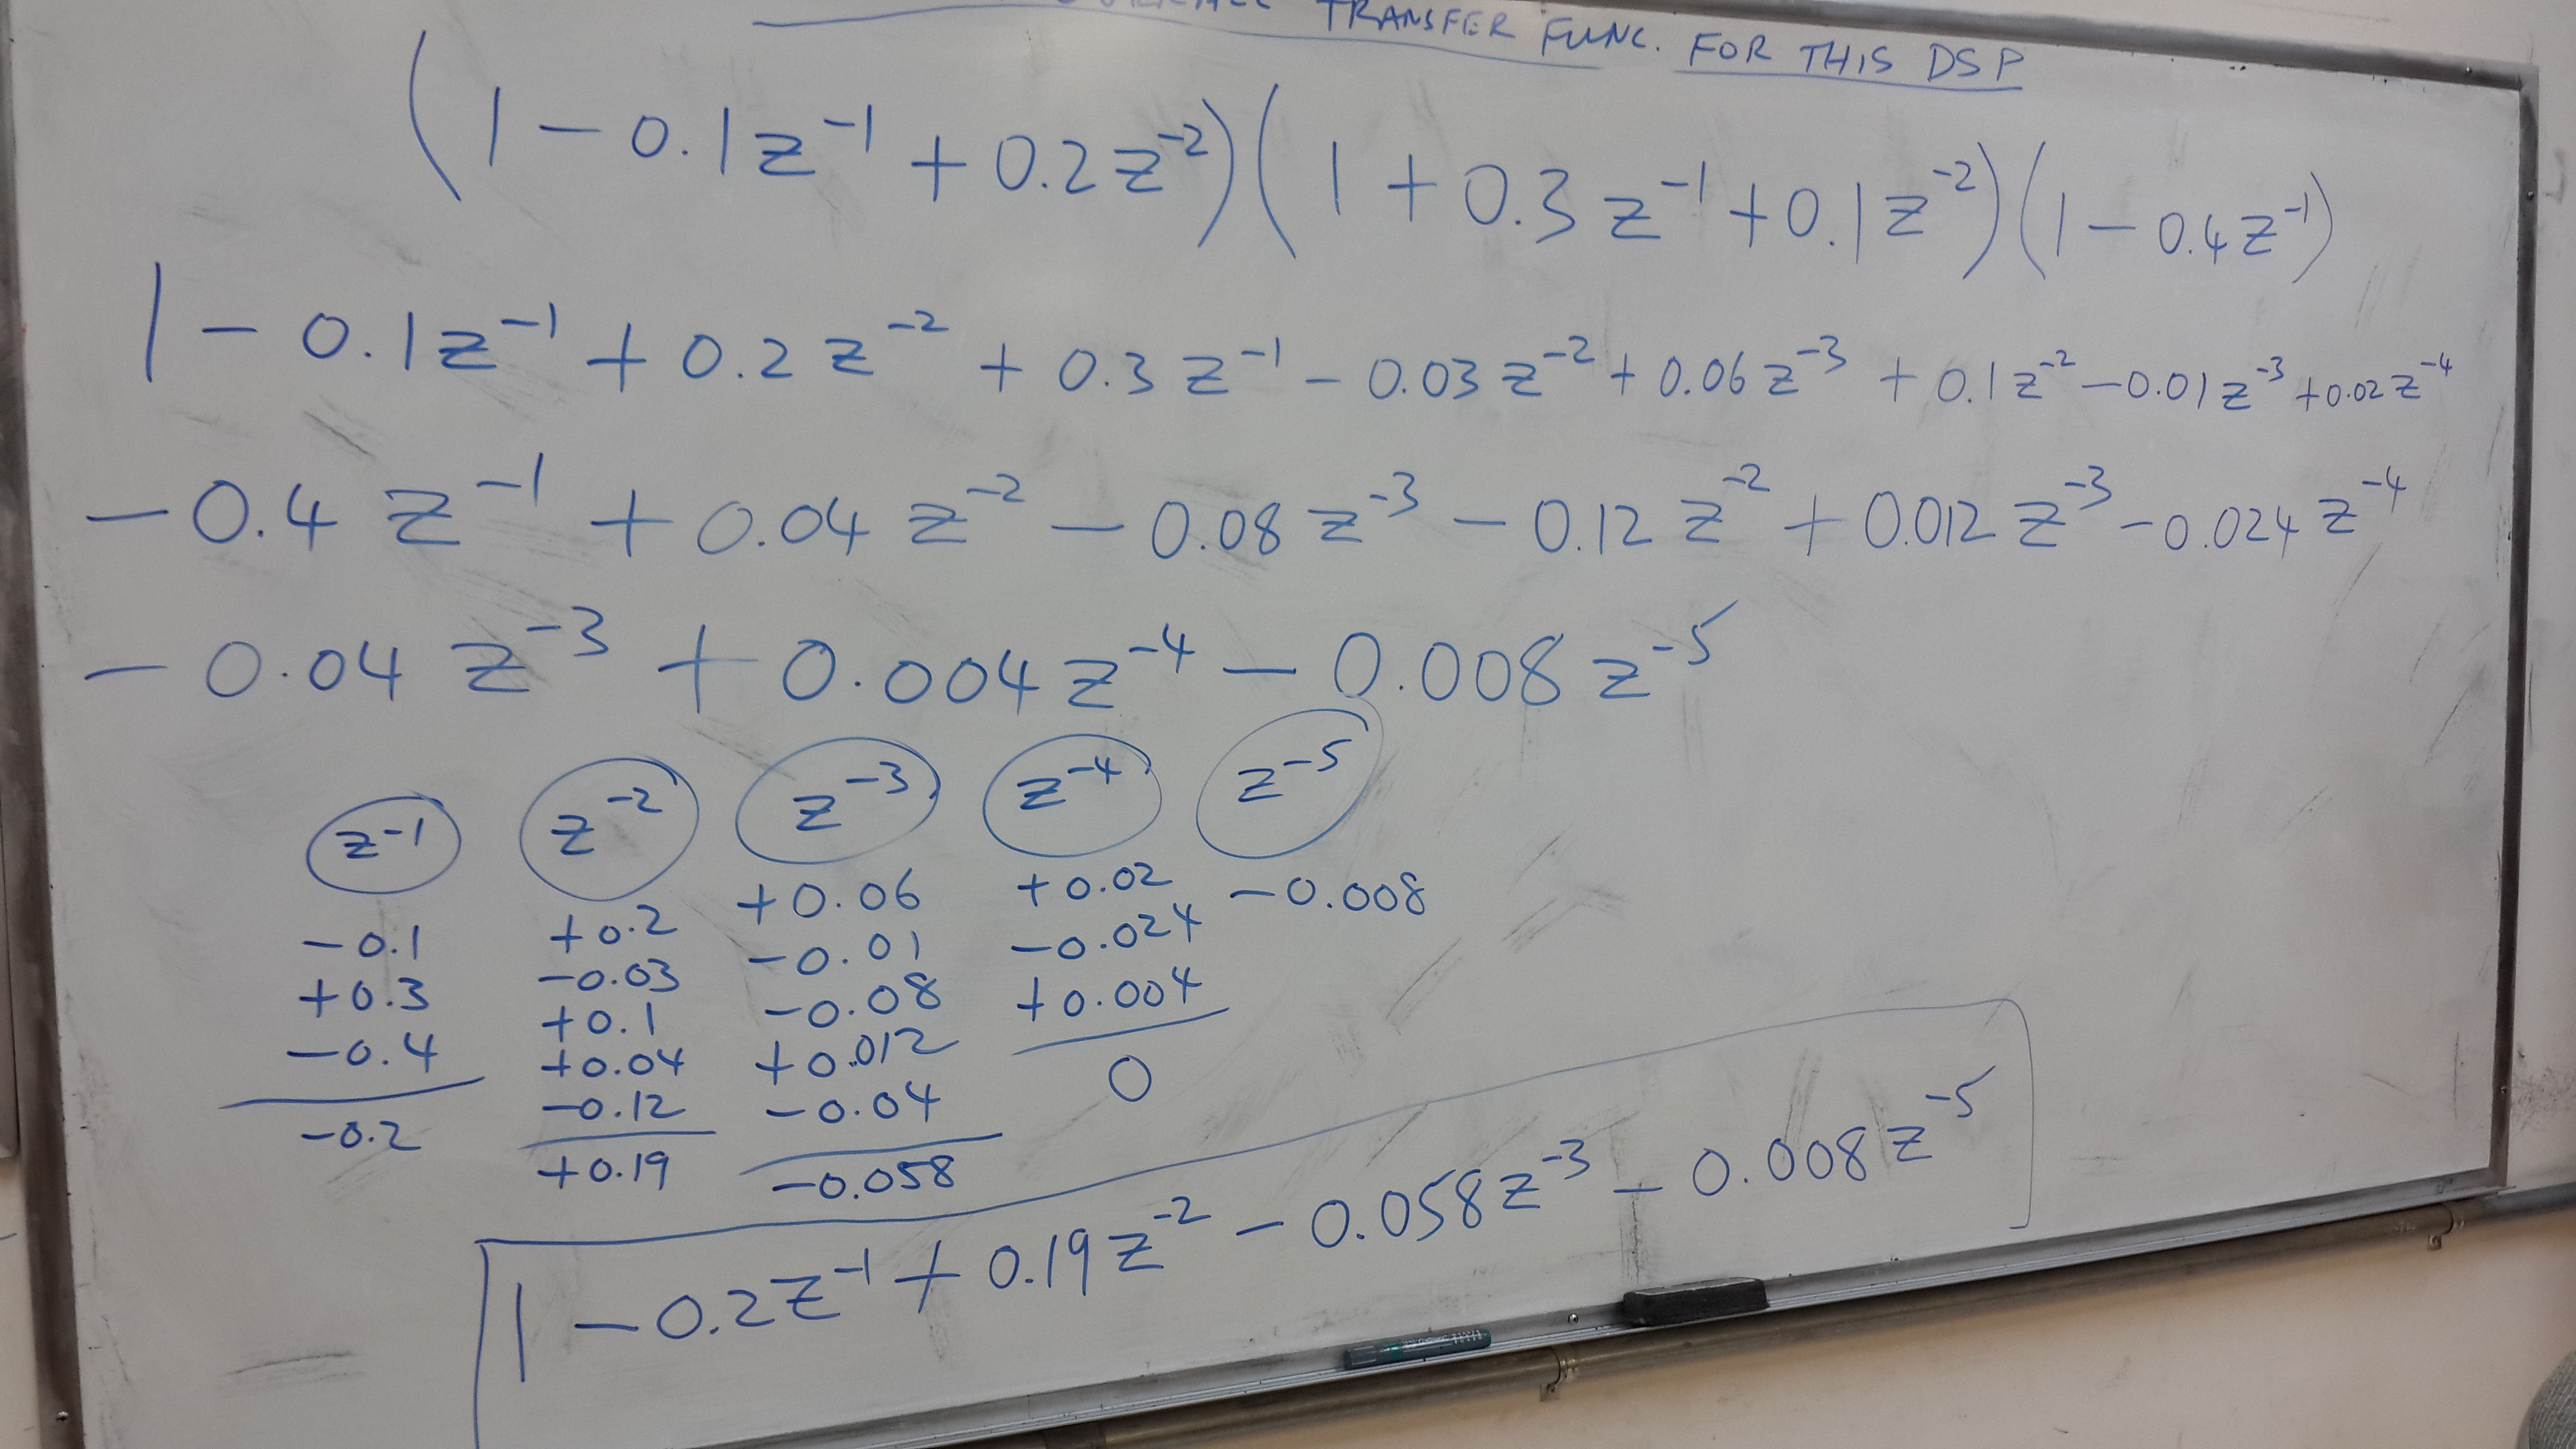 TRANSFER FUNC. FOR THIS DSP
(1 - 0.1z⁻¹ + 0.2z⁻²)(1 + 0.3z⁻¹ + 0.1z⁻²)(1 - 0.4z⁻¹)
1 - 0.1z⁻¹ + 0.2z⁻² + 0.3z⁻¹ - 0.03z⁻² + 0.06z⁻³ + 0.1z⁻² - 0.01z⁻³ + 0.02z⁻⁴
- 0.4z⁻¹ + 0.04z⁻² - 0.08z⁻³ - 0.12z⁻² + 0.012z⁻³ - 0.024z⁻⁴
- 0.04z⁻³ + 0.004z⁻⁴ - 0.008z⁻⁵
z⁻¹
-0.1
+0.3
-0.4
-0.2
z⁻²
+0.2
-0.03
+0.1
+0.04
-0.12
+0.19
z⁻³
+0.06
-0.01
-0.08
+0.012
-0.04
-0.058
z⁻⁴
+0.02
-0.024
+0.004
0
z⁻⁵
-0.008
1 - 0.2z⁻¹ + 0.19z⁻² - 0.058z⁻³ - 0.008z⁻⁵